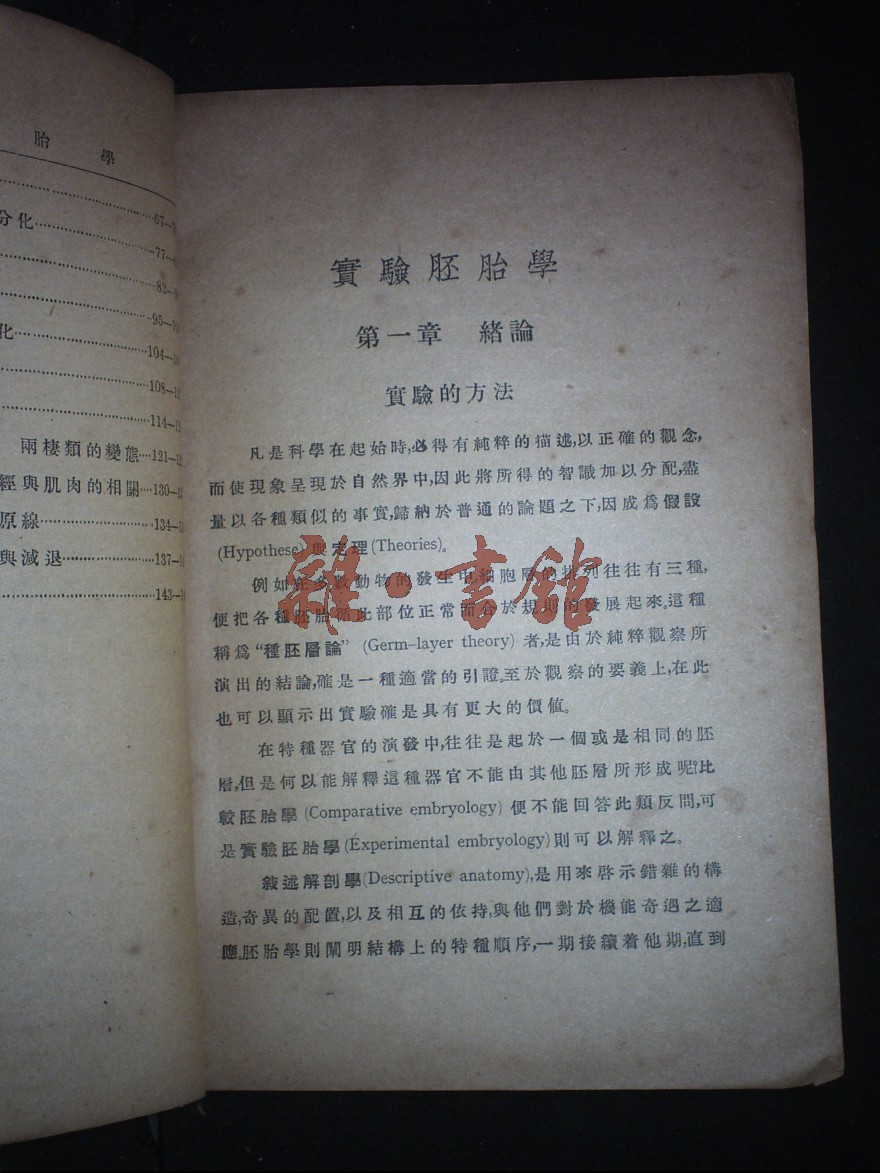 胎學
67—
分化 77—
82—
95—
化 104—
108—
114—
兩棲類的變態 121—
經與肌肉的相關 130—
原線 134—
與減退 137—
143—
實驗胚胎學
第一章 緒論
實驗的方法
凡是科學在起始時,必得有純粹的描述,以正確的觀念,
而使現象呈現於自然界中,因此將所得的智識加以分配,盡
量以各種類似的事實,歸納於普通的論題之下,因成爲假設
(Hypothese)與定理(Theories)。
例如在多數動物的發生中細胞層的排列往往有三種,
便把各種胚胎循此部位正常而合於規則的發展起來。這種
稱爲“種胚層論” (Germ-layer theory) 者,是由於純粹觀察所
演出的結論,確是一種適當的引證。至於觀察的要義上,在此
也可以顯示出實驗確是具有更大的價值。
在特種器官的演發中,往往是起於一個或是相同的胚
層,但是何以能解釋這種器官不能由其他胚層所形成呢?比
較胚胎學(Comparative embryology) 便不能回答此類反問,可
是實驗胚胎學(Experimental embryology)則可以解釋之。
敍述解剖學(Descriptive anatomy),是用來啓示錯雜的構
造,奇異的配置,以及相互的依持,與他們對於機能奇遇之適
應。胚胎學則闡明結構上的特種順序,一期接續着他期,直到
雜·書館